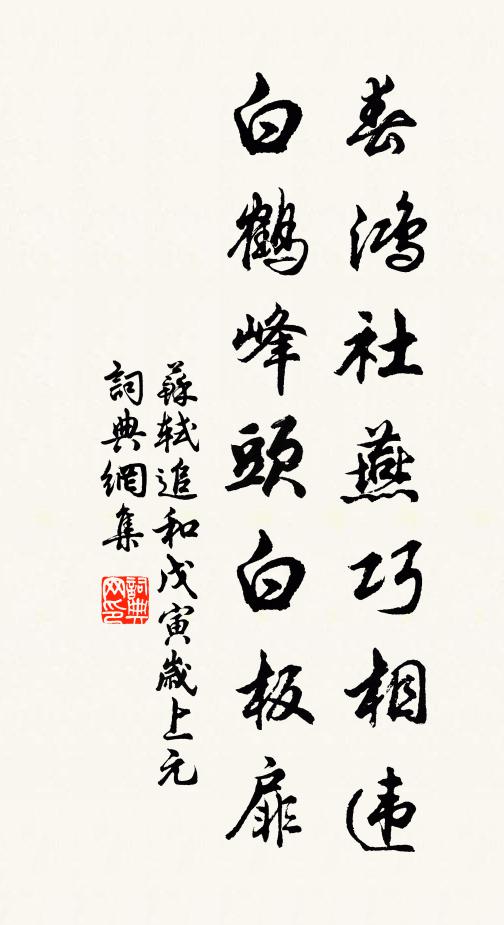 春鴻社燕巧相違
白鶴峰頭白板扉
蘇軾追和戊寅歲上元
詞典網集
詞典網印